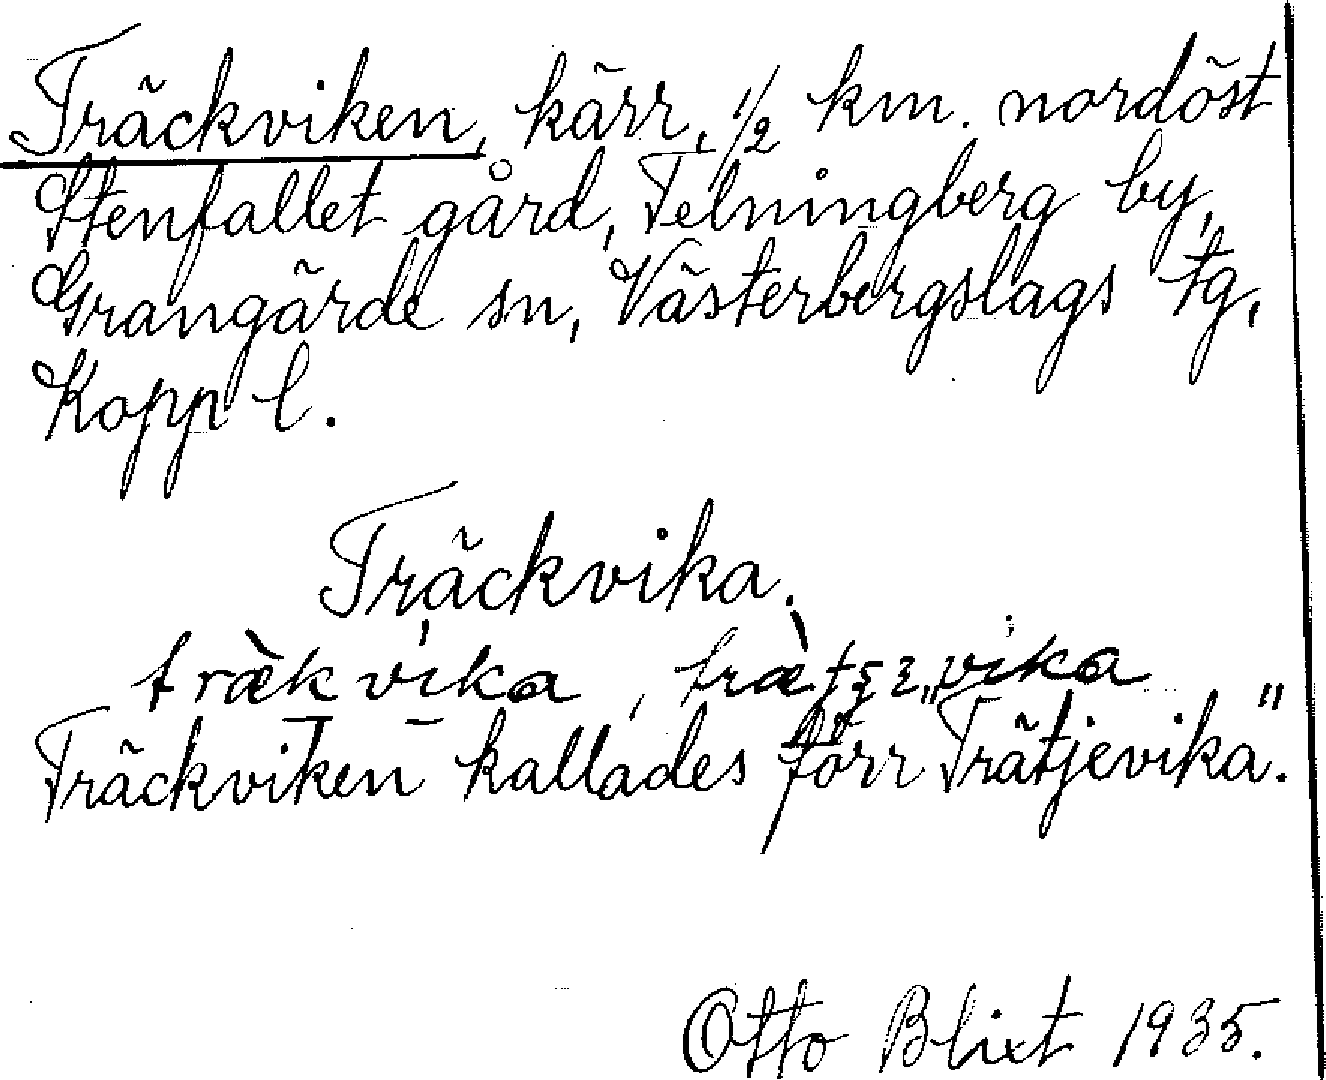 Träckviken, kärr, 1/2 km. nordöst
Stenfallet gård, Telningberg by,
Grangärde sn, Västerbergslags tg,
Kopp l.
Träckvika.
trækvika,
Träckviken kallades förr "Trätjevika".
Otto Blixt 1935.